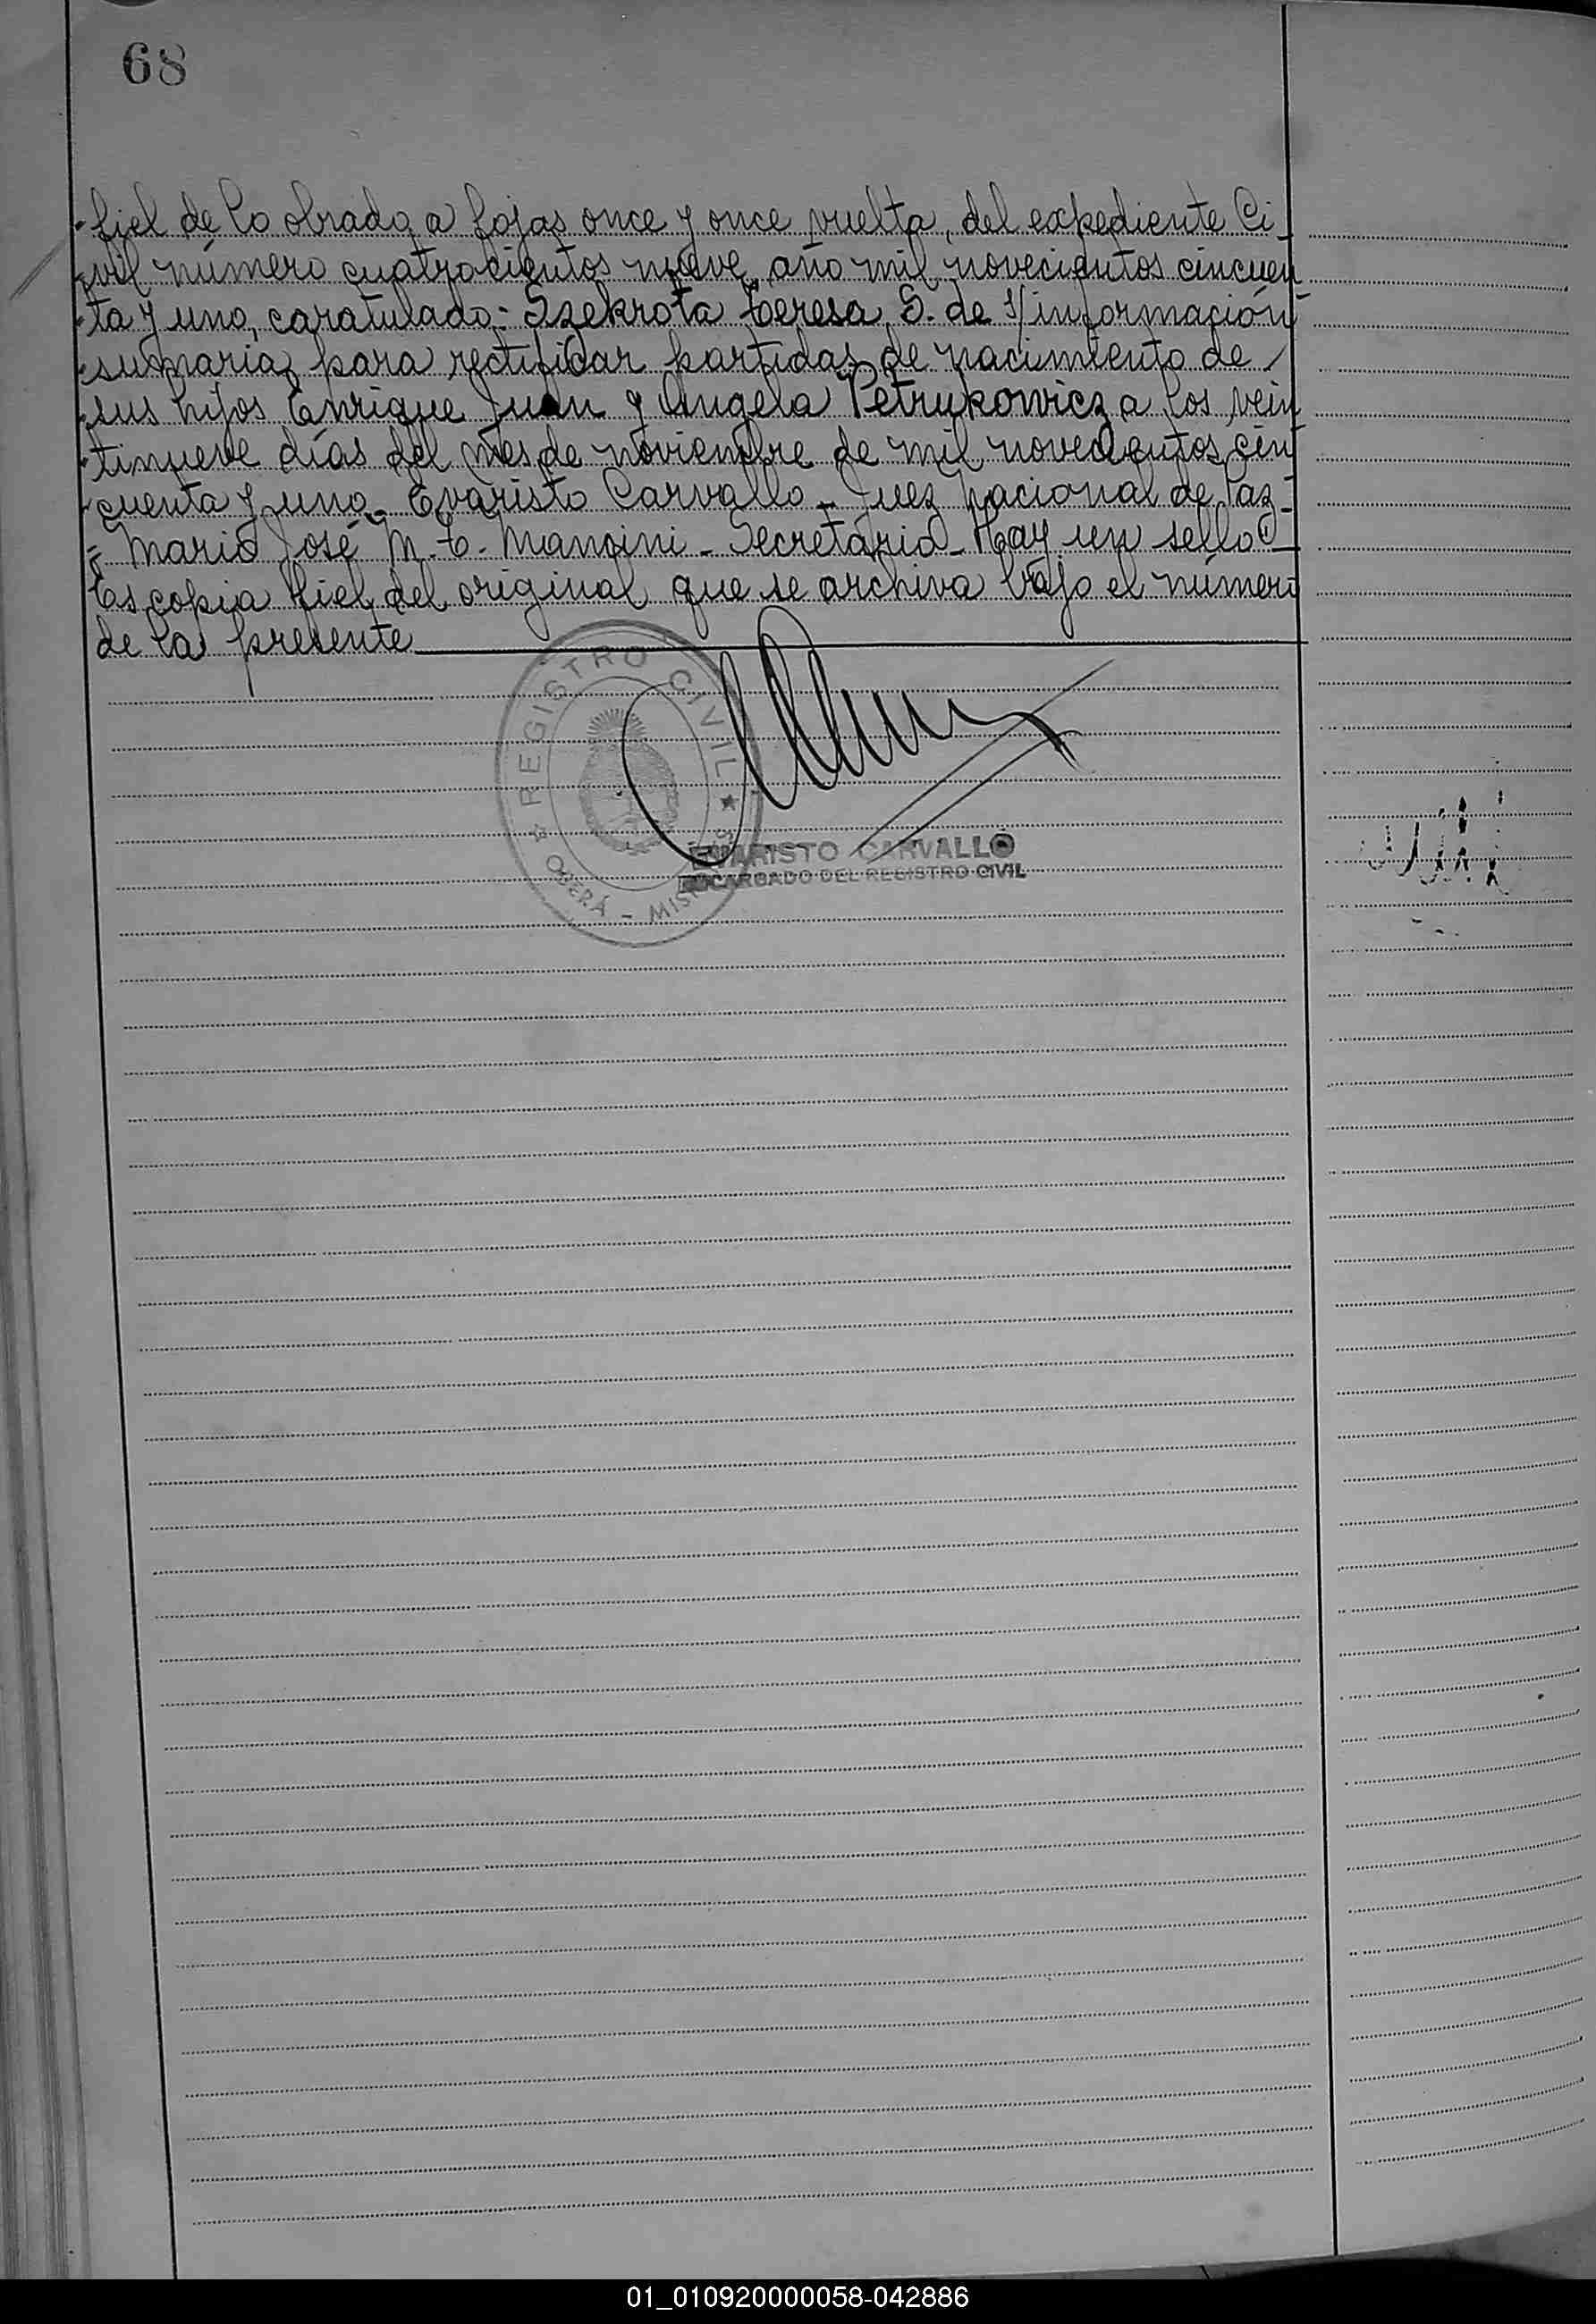 68
"fiel de lo obrado a fojas once y once vuelta, del expediente Ci
"vil número cuatrocientos nueve, año mil novecientos cincuen
"ta y uno, caratulado:- Szekrota Teresa S. de s/información
"sumaria para rectificar partidas de nacimiento de
"sus hijos Enrique Juan y Angela Petrukowicz a los vein
"tinueve días del mes de noviembre de mil novecientos cin
"cuenta y uno.- Evaristo Carvallo - Juez Nacional de Paz -
"- Mario José M. T. Mancini - Secretario - Hay un sello -
Es copia fiel del original que se archiva bajo el número
de la presente
REGISTRO CIVIL
OBERÁ - MISIONES
EVARISTO CARVALLO
ENCARGADO DEL REGISTRO CIVIL
01_010920000058-042886